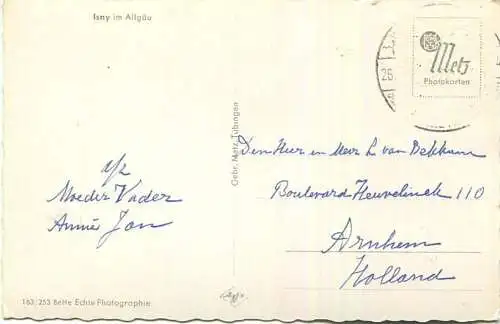 Isny im Allgäu
26.
Metz
Photokarten
Gebr. Metz, Tübingen
Den Heer en Mevr L van Dekkum
Boulevard Heuvelinck 110
Arnhem
Holland
Moeder Vader
Annie Jan
163/253 Bette Echte Photographie